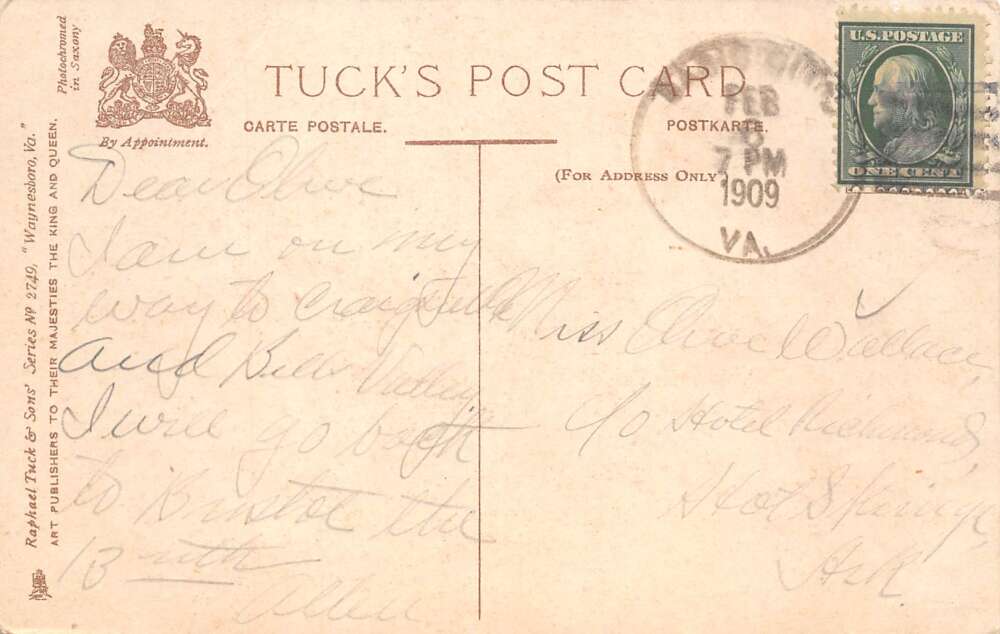 Photochromed
in Saxony
By Appointment.
TUCK'S POST CARD
CARTE POSTALE.
POSTKARTE.
(FOR ADDRESS ONLY)
Raphael Tuck & Sons' Series No 2749, "Waynesboro, Va."
ART PUBLISHERS TO THEIR MAJESTIES THE KING AND QUEEN.
U.S. POSTAGE
ONE CENT
FEB
7 PM
1909
VA.
Dear Olive
I am on my
way to Craigsville
and Bells Valley
I will go back
to Bristol the
13
Allen
Miss Olive Wallace
c/o Hotel Richmond,
Hot Springs
Ark